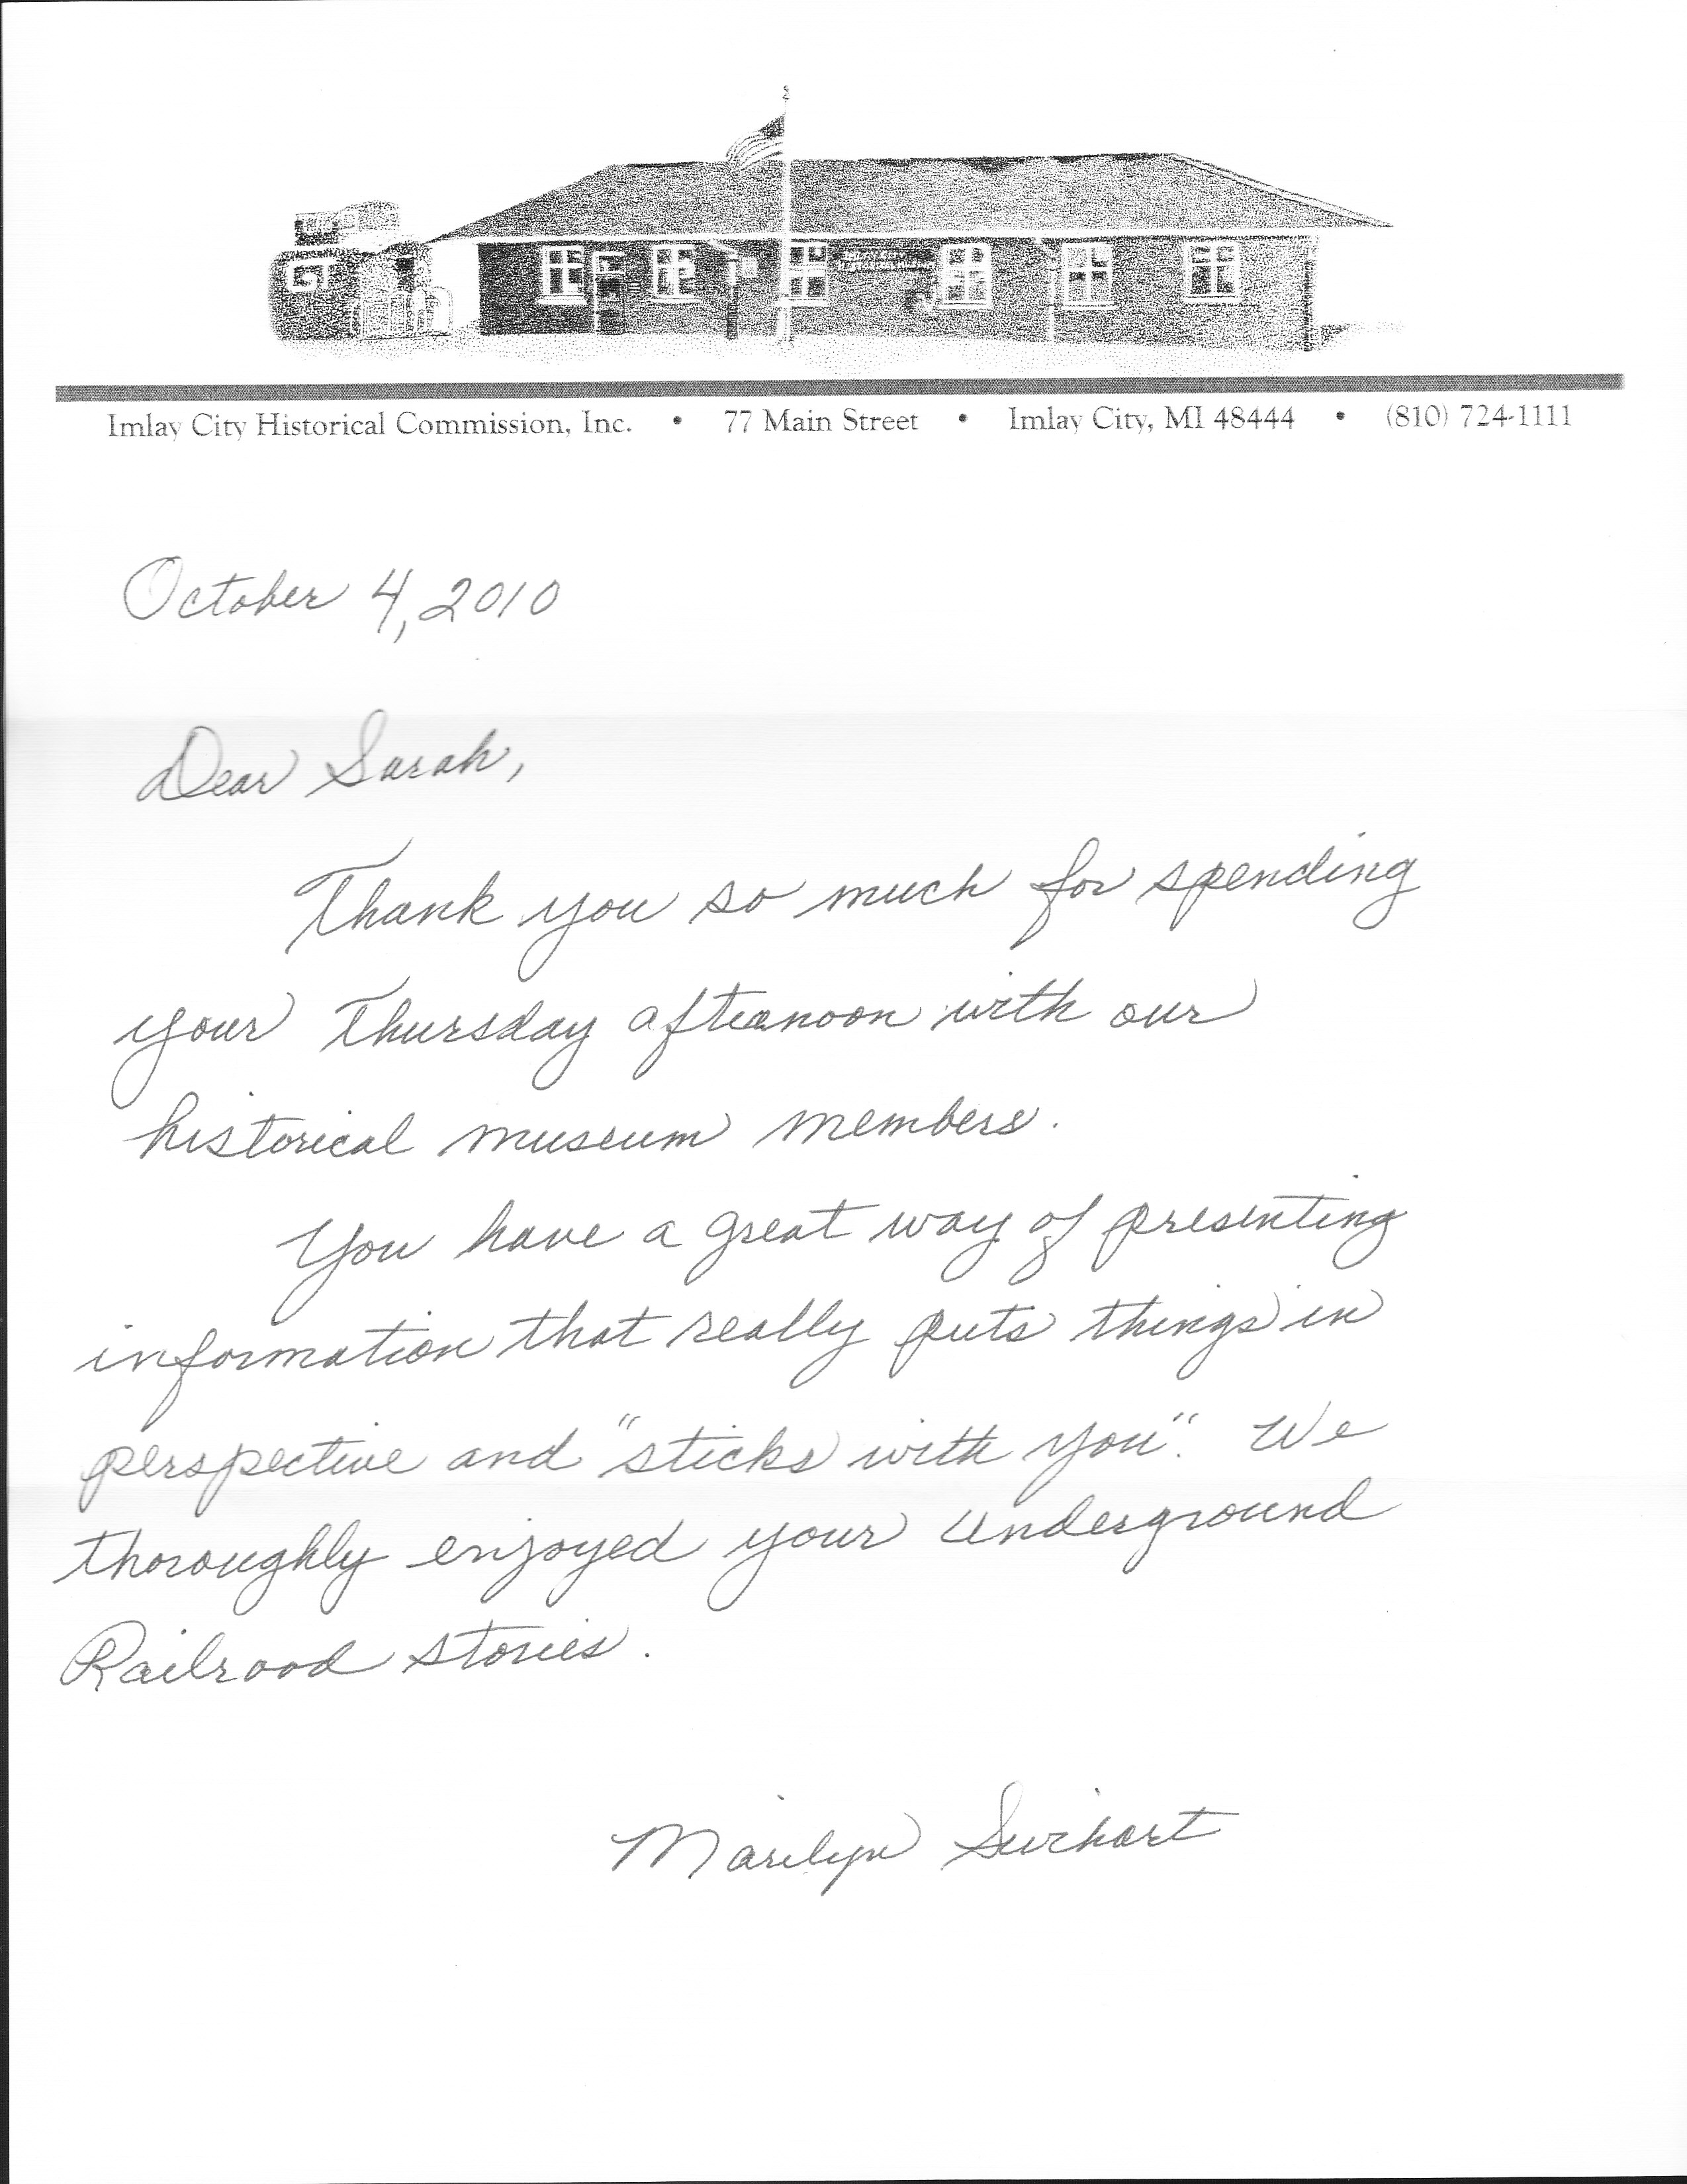 GT
Imlay City Historical Commission, Inc. • 77 Main Street • Imlay City, MI 48444 • (810) 724-1111
October 4, 2010
Dear Sarah,
Thank you so much for spending
your Thursday afternoon with our
historical museum members.
You have a great way of presenting
information that really puts things in
perspective and "sticks with you". We
thoroughly enjoyed your Underground
Railroad stories.
Marilyn Swihart